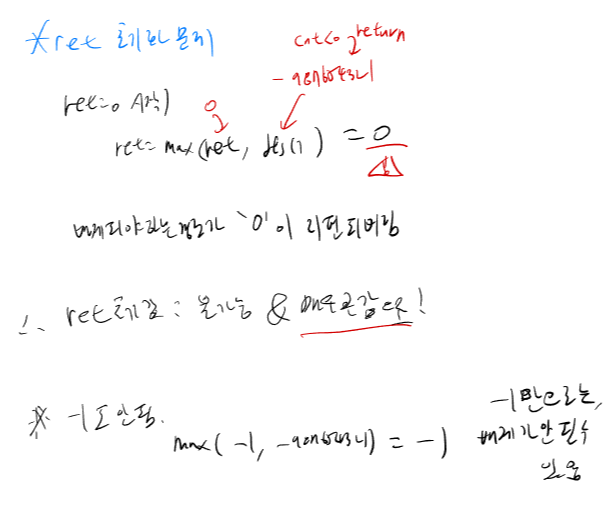 *ret 초기화 문제
cnt<0 return
-987654321
ret=0 시작)
0
ret= max(ret, dfs()) = 0
배제되야하는 경로가 '0'이 리턴되버림
∴ ret초기값 : 불가능 & 매우큰값 으로!
※ -1도 안됨.
max(-1, -987654321) = -1
-1만으로는,
배제가 안될수
있음